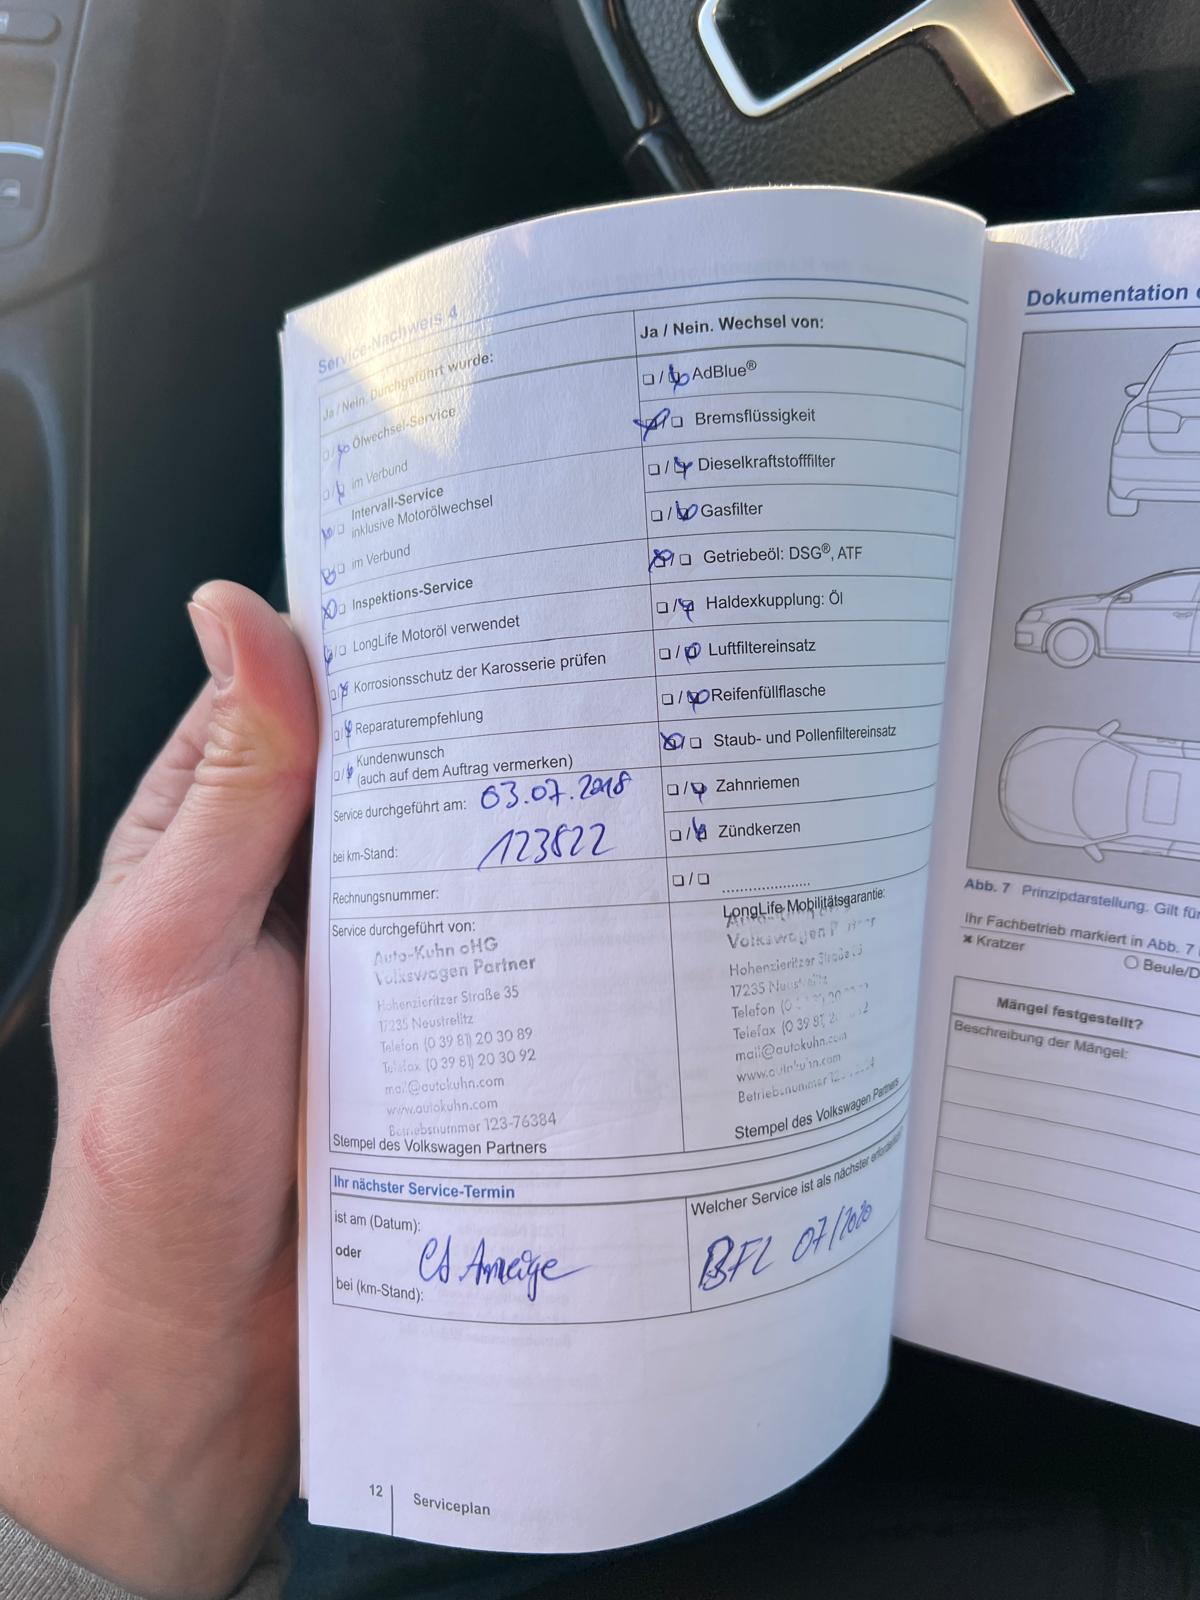 Service-Nachweis 4
Ja / Nein. Durchgeführt wurde:
Ölwechsel-Service
im Verbund
Intervall-Service
inklusive Motorölwechsel
im Verbund
Inspektions-Service
LongLife Motoröl verwendet
Korrosionsschutz der Karosserie prüfen
Reparaturempfehlung
Kundenwunsch
(auch auf dem Auftrag vermerken)
Service durchgeführt am: 03.07.2018
bei km-Stand: 123822
Rechnungsnummer:
Service durchgeführt von:
Auto-Kuhn oHG
Volkswagen Partner
Hohenzieritzer Straße 35
17235 Neustrelitz
Telefon (0 39 81) 20 30 89
Telefax (0 39 81) 20 30 92
mail@autokuhn.com
www.autokuhn.com
Betriebsnummer 123-76384
Stempel des Volkswagen Partners
Ja / Nein. Wechsel von:
AdBlue®
Bremsflüssigkeit
Dieselkraftstofffilter
Gasfilter
Getriebeöl: DSG®, ATF
Haldexkupplung: Öl
Luftfiltereinsatz
Reifenfüllflasche
Staub- und Pollenfiltereinsatz
Zahnriemen
Zündkerzen
LongLife Mobilitätsgarantie:
Volkswagen
Hohenzieritzer Straße
17235
Telefon
Telefax (0 39 81)
mail@autokuhn.com
Stempel des Volkswagen Partners
Ihr nächster Service-Termin
ist am (Datum):
oder
bei (km-Stand):
Anzeige
Welcher Service ist als nächster erforderlich?
BFL 07/2020
12
Serviceplan
Dokumentation
Abb. 7 Prinzipdarstellung. Gilt für
Ihr Fachbetrieb markiert in Abb. 7
Kratzer
Beule/D
Mängel festgestellt?
Beschreibung der Mängel: